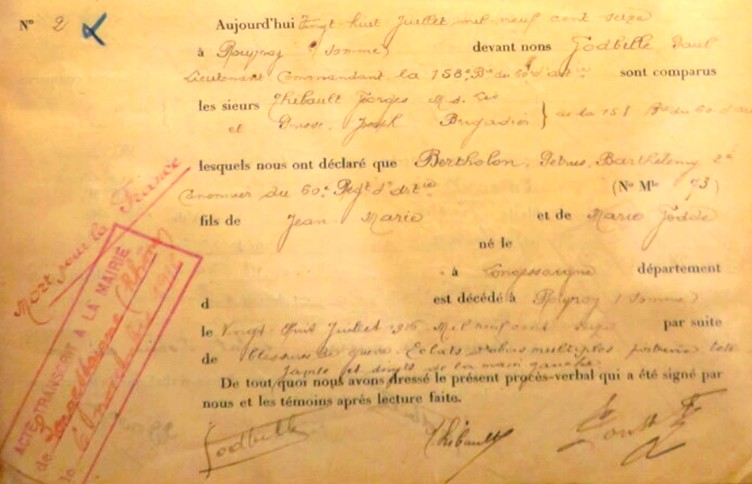 N° 2 Aujourd'hui Vingt-huit Juillet mil-neuf cent seize
à (Somme) devant nous Godbille Paul
Lieutenant Commandant la 158e Bie du 60e d'artie sont comparus
les sieurs Thibault Georges M. d. Lis
et Joseph Brigadier } de la 151 Bie du 60 d'art
lesquels nous ont déclaré que Bertholon, Petrus, Barthélemy 2e
Canonnier du 60e Regt d'artie (No Mle 93)
fils de Jean Marie et de Marie Goddé
né le
à Longessaigne département
d est décédé à (Somme)
le Vingt-Huit Juillet 1916 Mil neuf cent seize par suite
de blessures de guerre Eclats d'obus multiples poitrine tete
Jambe et doigts de la main gauche
De tout quoi nous avons dressé le présent procès-verbal qui a été signé par
nous et les témoins après lecture faite.
Godbille Thibault
Mort pour la France
ACTE TRANSCRIT A LA MAIRIE
de Longessaigne (Rhône)
le 1916